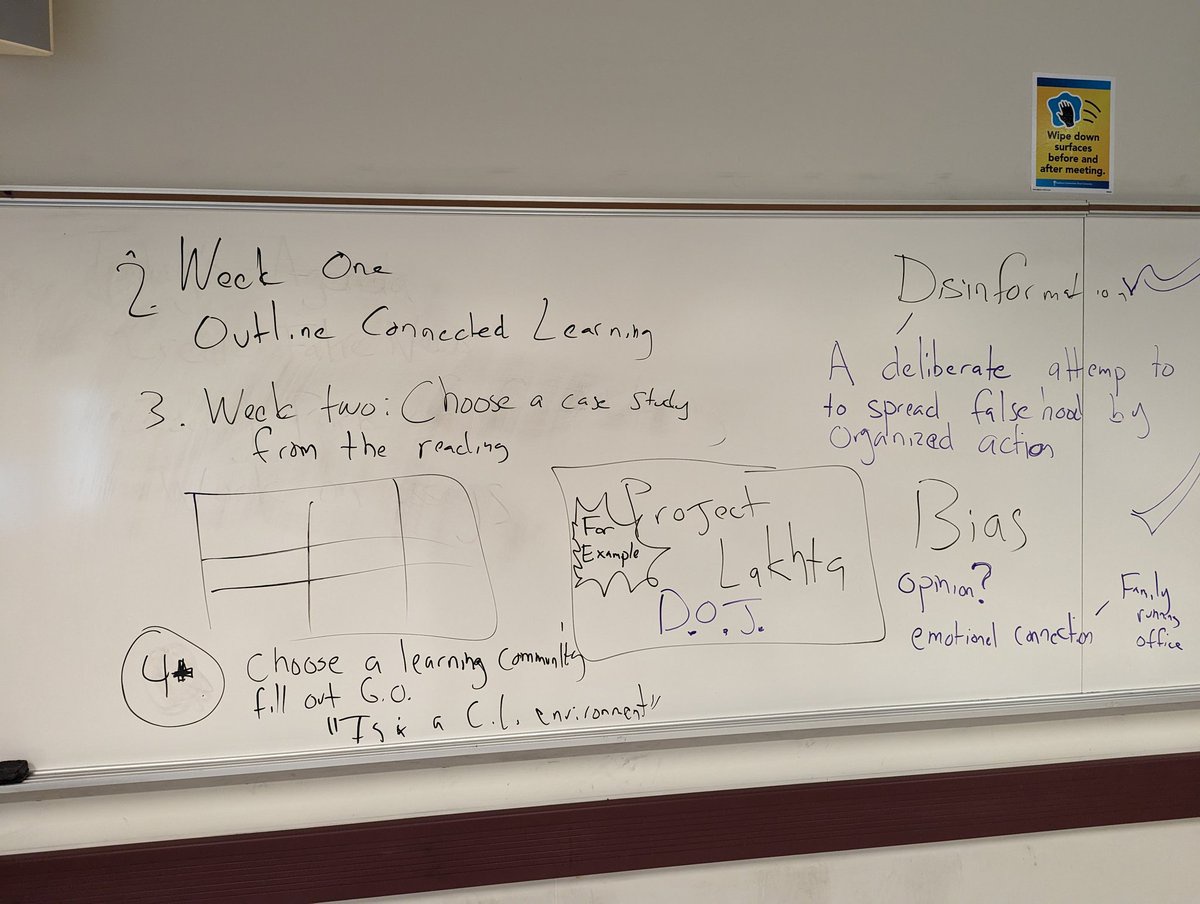 2. Week One
Outline Connected Learning
3. Week two: Choose a case study
from the reading
4
Choose a learning community
fill out G.O.
"Is x a C.L. environment"
For
Example
Project
Lakhta
D.O.J.
Disinformation
A deliberate attemp to
to spread falsehood by
organized action
Bias
opinion?
emotional connection
Family
running
office
Wipe down
surfaces
before and
after meeting.